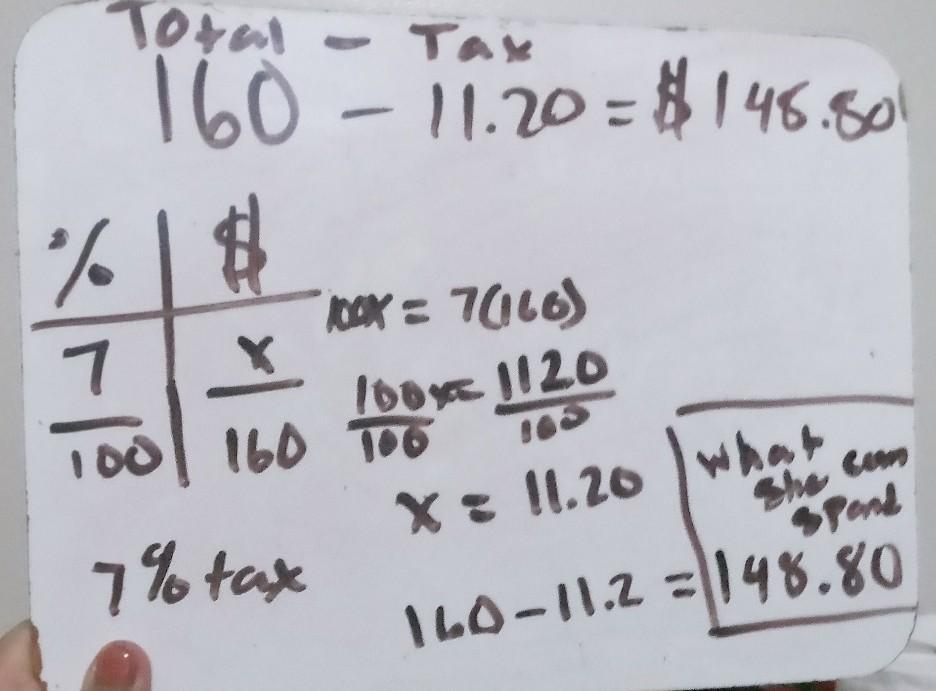 Total - Tax
160 - 11.20 = $148.80
% $
100x = 7(160)
7 x
100 160
100x = 1120
100 100
x = 11.20
7% tax
160 - 11.2 =
what
she can
spend
148.80